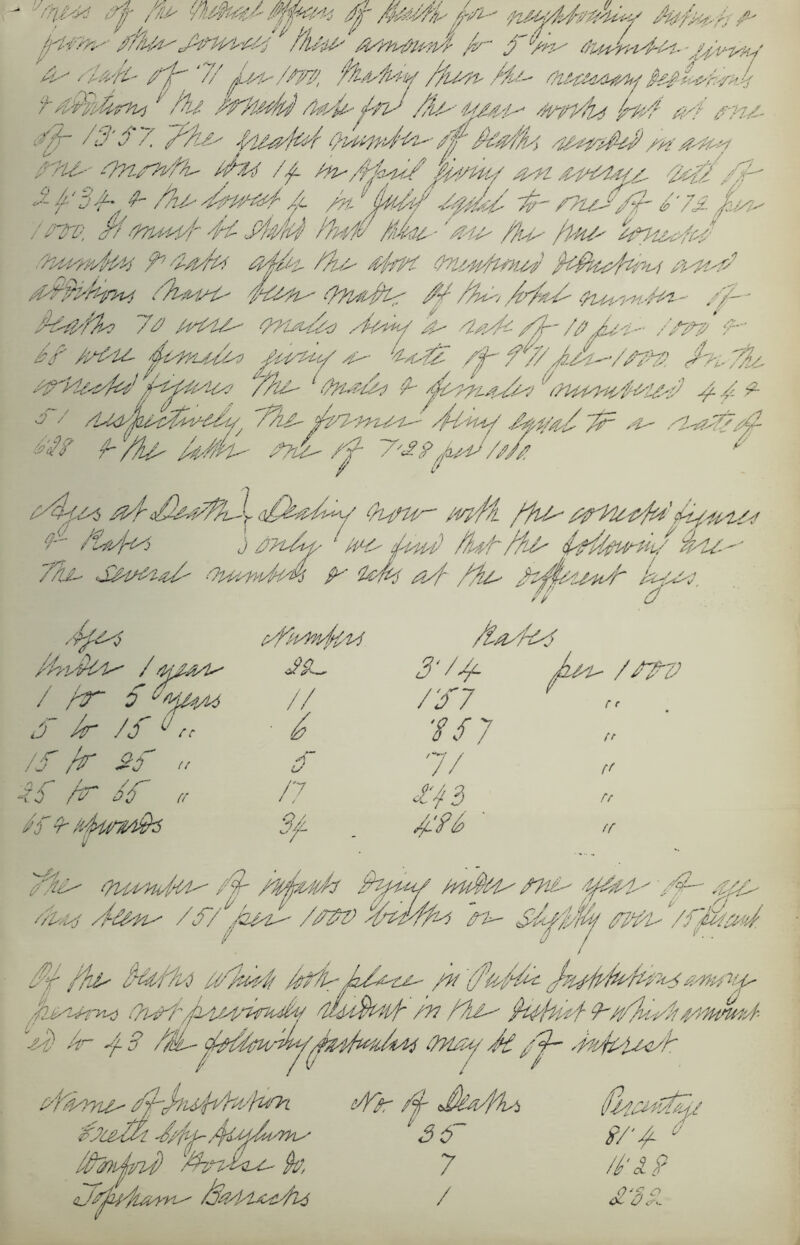 of the Medical Officers of Health for neighbouring Districts &
from other sources these amount to 5 in number giving
a rate of ·71 per 1000. Making then the necessary deductions
& additions the corrected rate for the year works out at one
of 13·57. The greatest number of deaths recorded in any
one month was 14 in April giving an average rate of
24·34 & the lowest 4 in July equal to one of 6·72 per
1000. It must be stated that these are the true corrected
numbers & rates after the above mentioned deductions and
additions have been made. Of this total number of
deaths 70 were males being a rate of 10 per 1000 &
68 were females giving a rate of 9·71 per 1000. In the
corrected figures the males & females numbered 44 &
51 respectively, the former being equal to a rate of
6·28 & the latter one of 7·28 per 1000.
Ages at Death } Dealing now with the corrected figures
& Rates } only we find that the following are
the several numbers & rates at the different ages.
Ages Numbers Rates
Under 1 year 22 3·14 per 1000
1 to 5 years 11 1·57 "
5 to 15 " 6 ·857 "
15 to 25 " 5 ·71 "
25 to 65 " 17 2·43 "
65 & upwards 34 4·86 "
The number of infants dying under one year of age
has been 151 per 1000 births or slightly over 15 per cent.
Of the deaths which took place in Public Institutions among
persons not previously resident in the District & which amount-
ed to 43 the following particulars may be of interest.
Name of Institution No. of Deaths Percentage
Exeter City Asylum 35 81·4
Wonford House Do. 7 16·28
Topsham Barracks 1 2·32